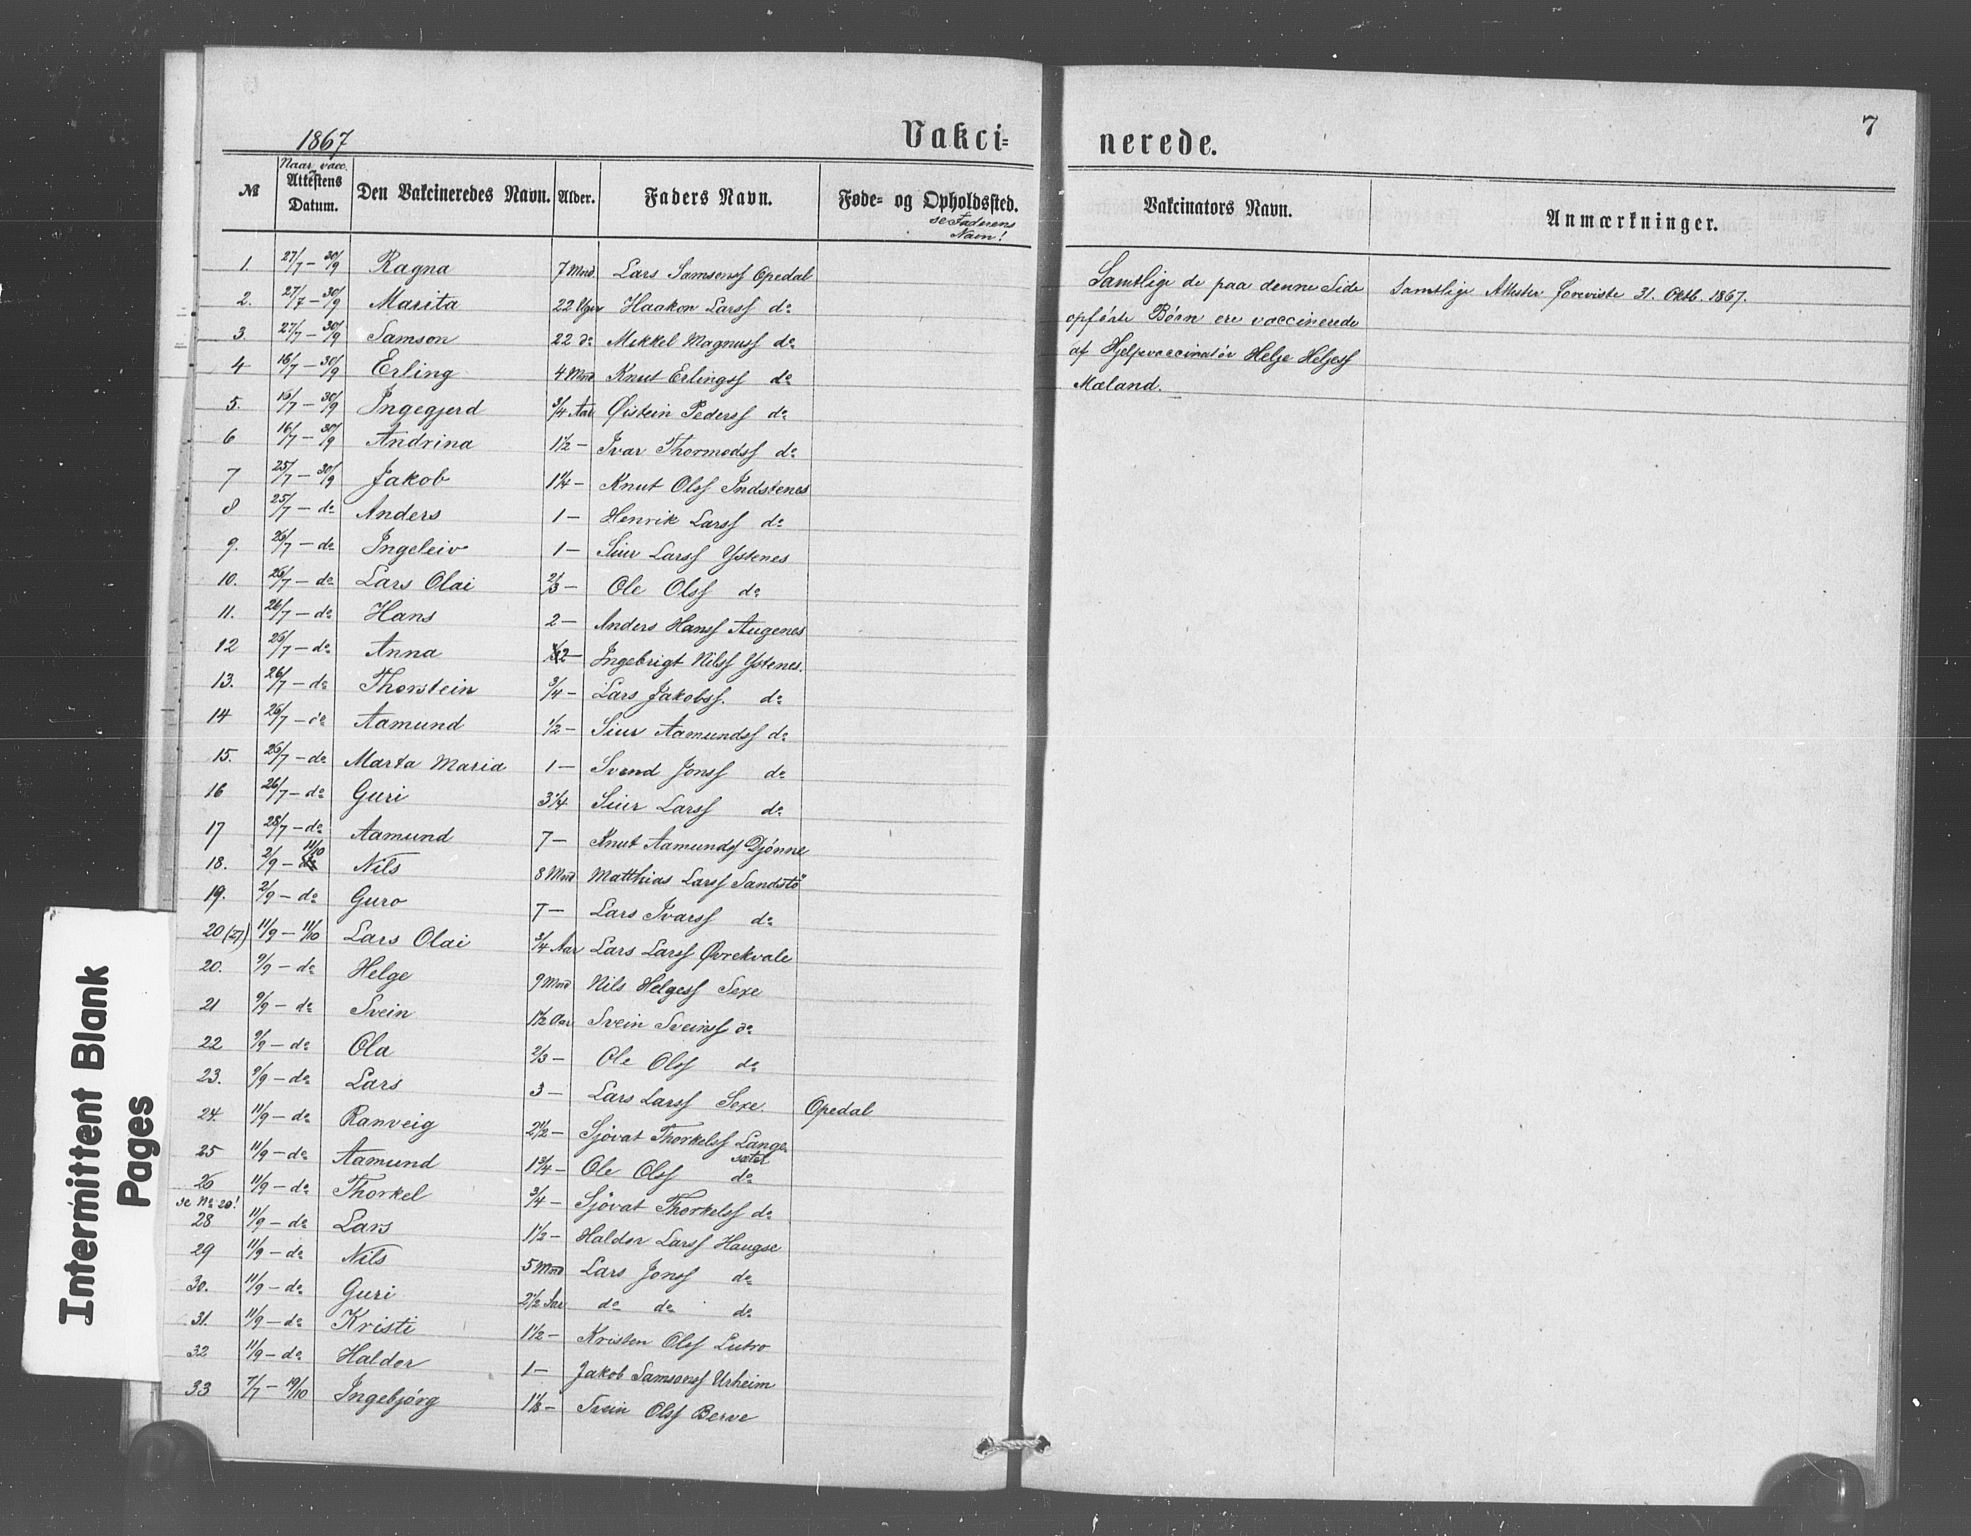 7
1867
Vakci-
nerede.
№ | Naar vacc. Attestens Datum. | Den Vakcineredes Navn. | Alder. | Faders Navn. | Føde- og Opholdssted. se Faderens Navn! | Vakcinators Navn. | Anmærkninger.
1. 27/7 – 30/9 Ragna 7 Mnd. Lars Samsonsf Opedal
2. 27/7 – 30/9 Marita 22 Uger Haakon Larsf do
3. 27/7 – 30/9 Samson 22 do Mikkel Magnusf do
4 16/7 – 30/9 Erling 4 Mnd Knut Erlingsf do
5. 15/7 – 30/9 Ingegjerd 3/4 Aar Øistein Pedersf do
6 16/7 – 30/9 Andrina 1 1/2 – Ivar Thormodsf do
7 25/7 – 30/9 Jakob 1 1/4 – Knut Olsf Indstenes
8 25/7 – do Anders 1 – Henrik Larsf do
9. 26/7 – do Ingeleiv 1 – Siur Larsf Ystenes
10. 26/7 – do Lars Olai 2/3 – Ole Olsf do
11. 26/7 – do Hans 2 – Anders Hansf Augenes
12 26/7 – do Anna 2 – Ingebrigt Nilsf Ystenes.
13. 26/7 – do Thorstein 3/4 – Lars Jakobsf. do
14 26/7 – do Aamund 1/2 – Siur Aamundsf do
15. 26/7 – do Marta Maria 1 – Svend Jonsf do
16 26/7 – do Guri 3 1/4 Siur Larsf do
17 28/7 – do Aamund 7 – Knut Aamundsf Djönne
18. 2/9 – 11/10 Nils 8 Mnd Matthias Larsf Sandstö
19. 2/9 – do Guro 7 – Lars Ivarsf do
20 (27) 11/9 – 11/10 Lars Olai 3/4 Aar Lars Larsf Øvrekvale
20. 9/9 – do Helge 9 Mnd Nils Helgesf Sexe
21 9/9 – do Svein 1 1/2 Aar Svein Sveinsf do
22 9/9 – do Ola 2/3 – Ole Olsf do
23. 9/9 – do Lars 3 – Lars Larsf Sexe. Opedal
24. 11/9 – do Ranveig 2 1/2 – Sjövat Thorkelsf Langesætet
25 11/9 – do Aamund 1 3/4 – Ole Olsf do
26 11/9 – do Thorkel 3/4 – Sjövat Thorkelsf do
se No 20!
28 11/9 – do Lars 1 1/2 – Haldor Larsf Haugse
29 11/9 – do Nils 5 Mnd Lars Jonsf do
30. 11/9 – do Guri 2 1/2 Aar do do do
31. 11/9 – do Kristi 1 1/2 – Kristen Olsf Lutro
32 11/9 – do Haldor 1 – Jakob Samsonsf Urheim
33 7/7 – 19/10 Ingebjörg Svein Olsf Berve
Samtlige de paa denne Side
opförte Börn ere vaccinerede
af Hjelpevaccinatör Helje Heljesf
Mæland.
Samtlige Attester foreviste 31. Oktb. 1867.
Intermittent Blank
Pages